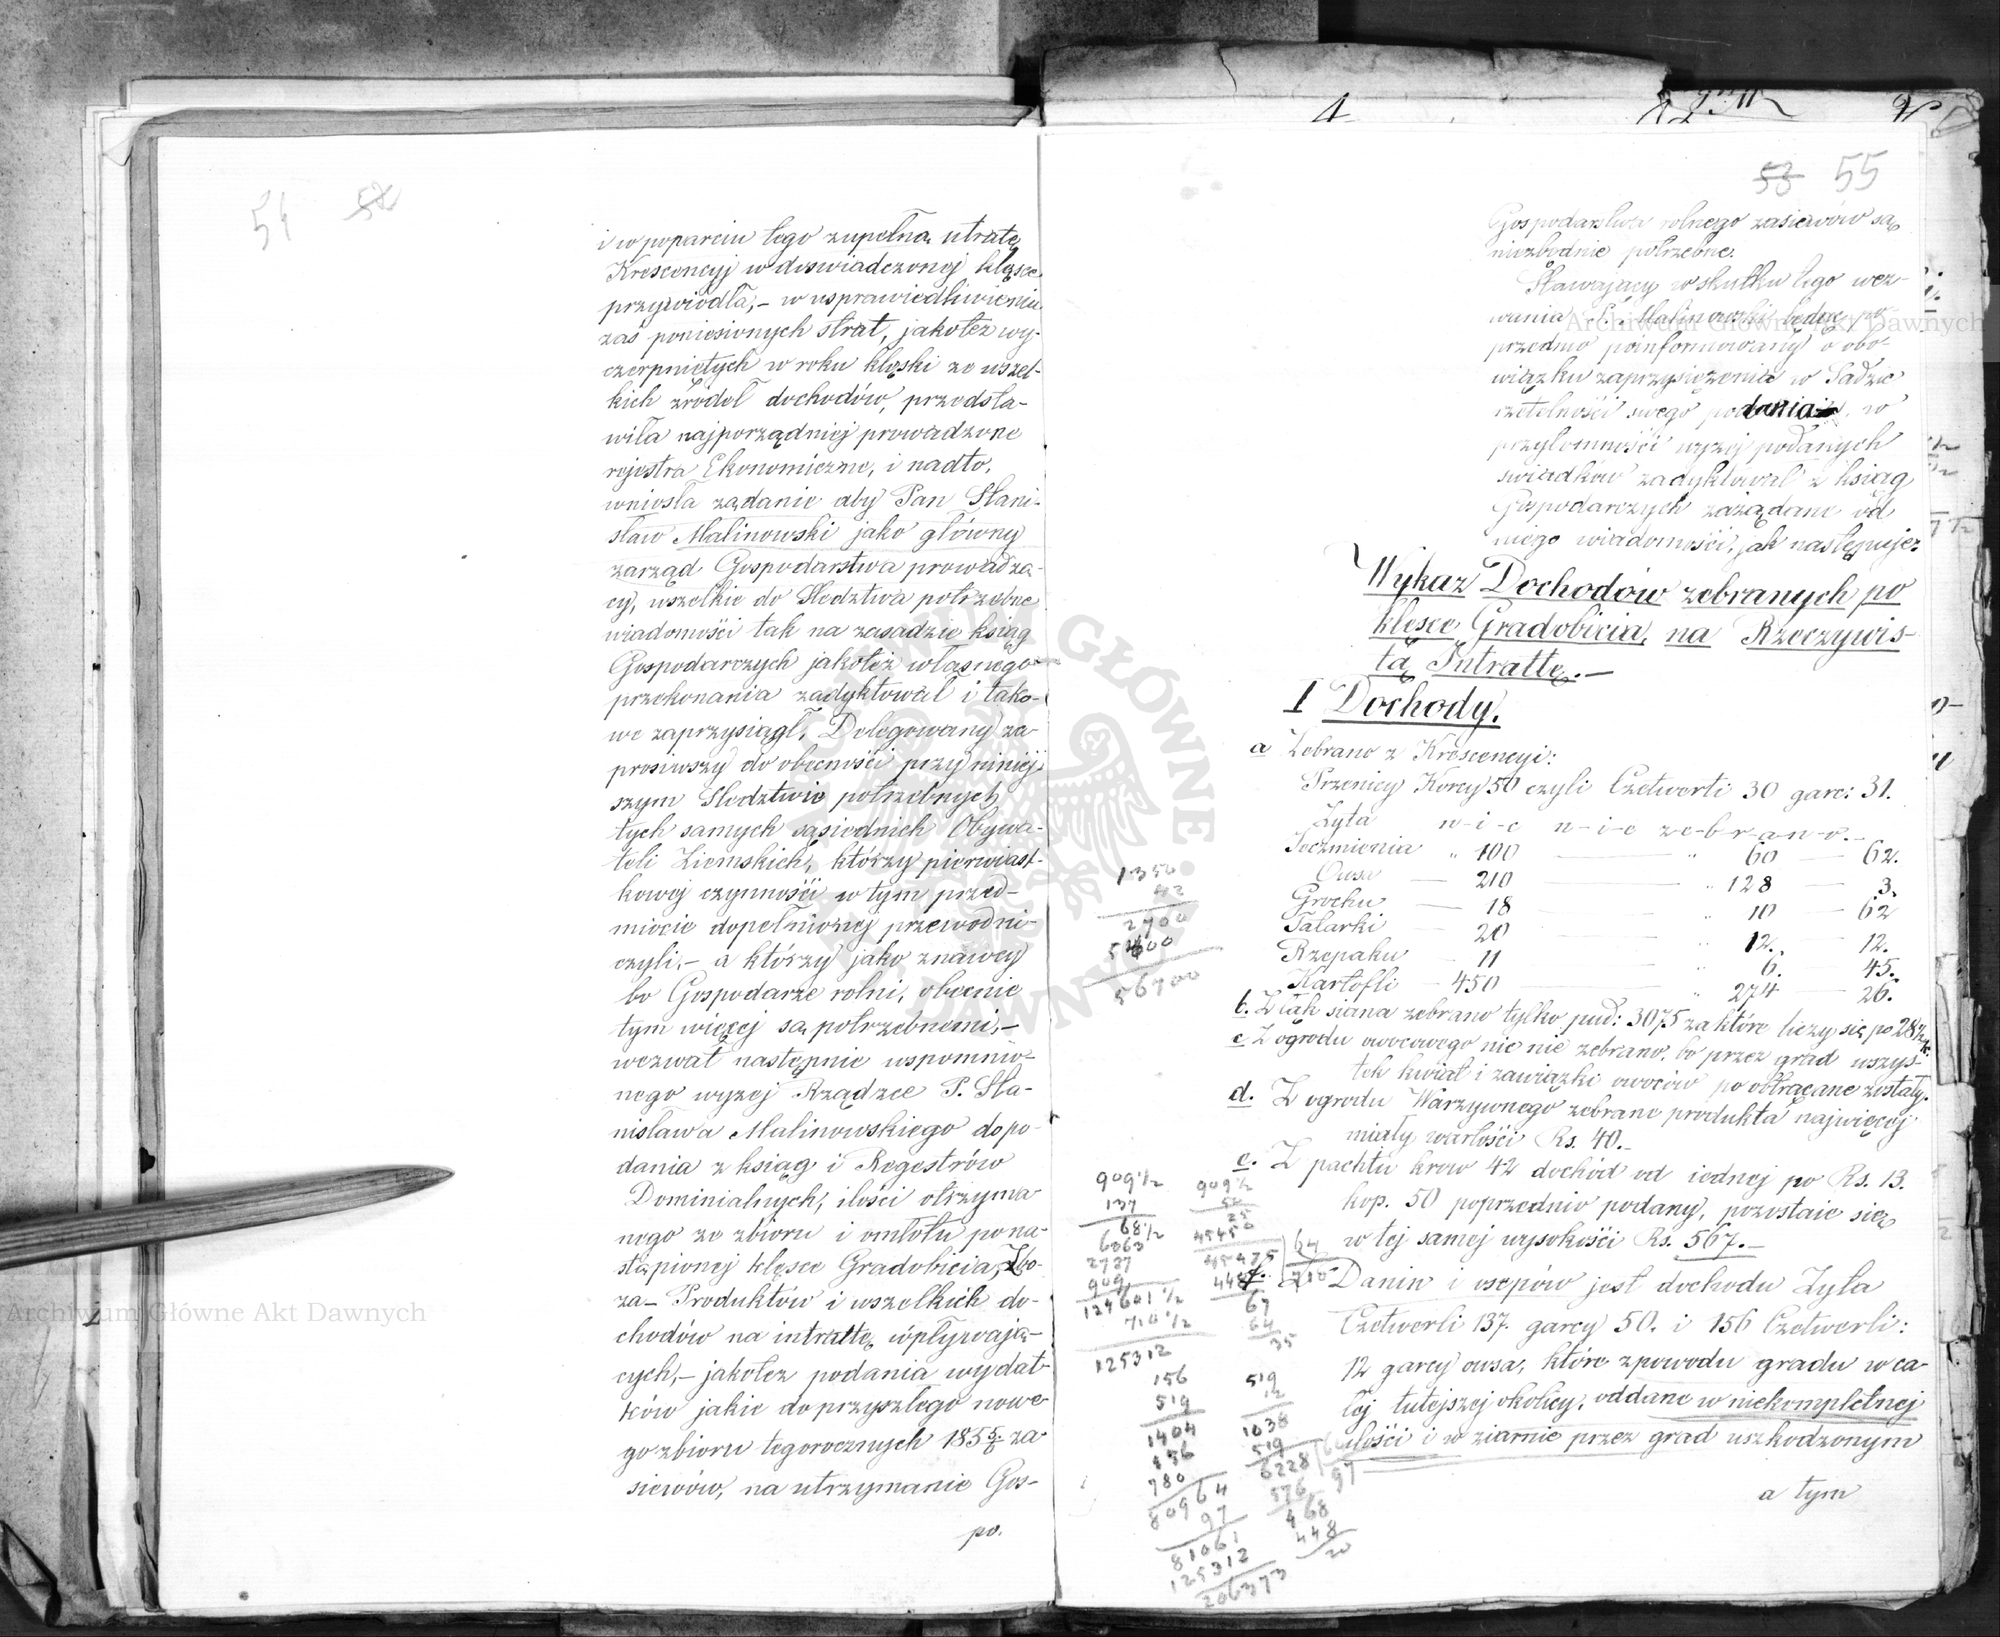 54 52
i w poparciu tego zupełną utratę
Krescencyj w doświadczonej klęsce
przywiodła, – w usprawiedliwieniu
zaś poniesionych strat, jakoteż wy-
czerpniętych w roku klęski ze wszel-
kich źródeł dochodów, przedsta-
wiła najporządniej prowadzone
rejestra Ekonomiczne, i nadto,
wniosła żądanie aby Pan Stani-
sław Malinowski jako główny
zarząd Gospodarstwa prowadzą-
cy, wszelkie do Śledztwa potrzebne
wiadomości tak na zasadzie ksiąg
Gospodarczych jakoteż własnego
przekonania zadyktował i tako-
we zaprzysiągł. Delegowany za-
prosiwszy do obecności przy niniej-
szym Śledztwie potrzebnych
tych samych sąsiednich Obywa-
teli Ziemskich, którzy pierwiast-
kowej czynności w tym przed-
miocie dopełnionej przewodni-
czyli, – a którzy jako znawcy
bo Gospodarze rolni, obecnie
tym więcej są potrzebnemi, –
wezwał następnie wspomnio-
nego wyżej Rządzcę P. Sta-
nisława Malinowskiego do po-
dania z ksiąg i Regestrów
Dominialnych, ilości otrzyma-
nego ze zbioru i omłotu po na-
stąpionej klęsce Gradobicia, Zbo-
ża – Produktów i wszelkich do-
chodów na intratę wpływają-
cych, – jakoteż podania wydat-
ków jakie do przyszłego nowe-
go zbioru tegorocznych 1855/6 za-
siewów, na utrzymanie Gos-
po.
53 55
Gospodarstwa rolnego zasiewów są
niezbędnie potrzebne.
Stawający w skutku tego wez-
wania P. Malinowski będąc po-
przednio poinformowany o obo-
wiązku zaprzysiężenia w Sądzie
rzetelności swego podania, w
przytomności wyżej podanych
świadków zadyktował z ksiąg
Gospodarczych zażądane od
niego wiadomości, jak następuje:
Wykaz Dochodów zebranych po
klęsce Gradobicia, na Rzeczywis-
tą Intratę. –
I Dochody.
a Zebrano z Krescencyi:
Pszenicy Korcy 50 czyli Czetwerti 30 garc: 31.
Żyta n-i-c n-i-e z-e-b-r-a-n-o. –
Jęczmienia " 100 — " 60 — 62.
Owsa — 210 — " 128 — 3.
Grochu — 18 — " 10 — 62
Tatarki — 20 — " 12. — 12.
Rzepaku — 11 — " 6. — 45.
Kartofli — 450 — " 274 — 26.
b. Z łąk siana zebrano tylko pud: 3075 za które liczy się po 28½ k.
c Z ogrodu owocowego nic nie zebrano, bo przez grad wszys-
tek kwiat i zawiązki owoców poobtrącane zostały.
d. Z ogrodu Warzywnego zebrane produkta najwięcej
miały wartości Rs. 40. –
e. Z pachtu krów 42 dochód od iednej po Rs. 13.
kop. 50 poprzednio podany, pozostaie się
w tej samej wysokości Rs. 567. –
f. Z Danin i osepów jest dochodu Żyta
Czetwerti 137. garcy 50. i 156 Czetwerti:
12 garcy owsa, które z powodu gradu w ca-
łej tutejszej okolicy, oddane w niekompletnej
ilości i w ziarnie przez grad uszkodzonym
a tym
1350
42
2700
5400
56700
909½
137
68½
6363
2727
909
124601½
710½
125312
156
519
1404
156
780
80964
97
81061
125312
206373
909½
50
25
45450
45475
448
67
64
35
64
710
519
12
1038
519
6228
576
468
448
20
97
Archiwum Główne Akt Dawnych
Archiwum Główne Akt Dawnych
ARCHIWUM GŁÓWNE AKT DAWNYCH